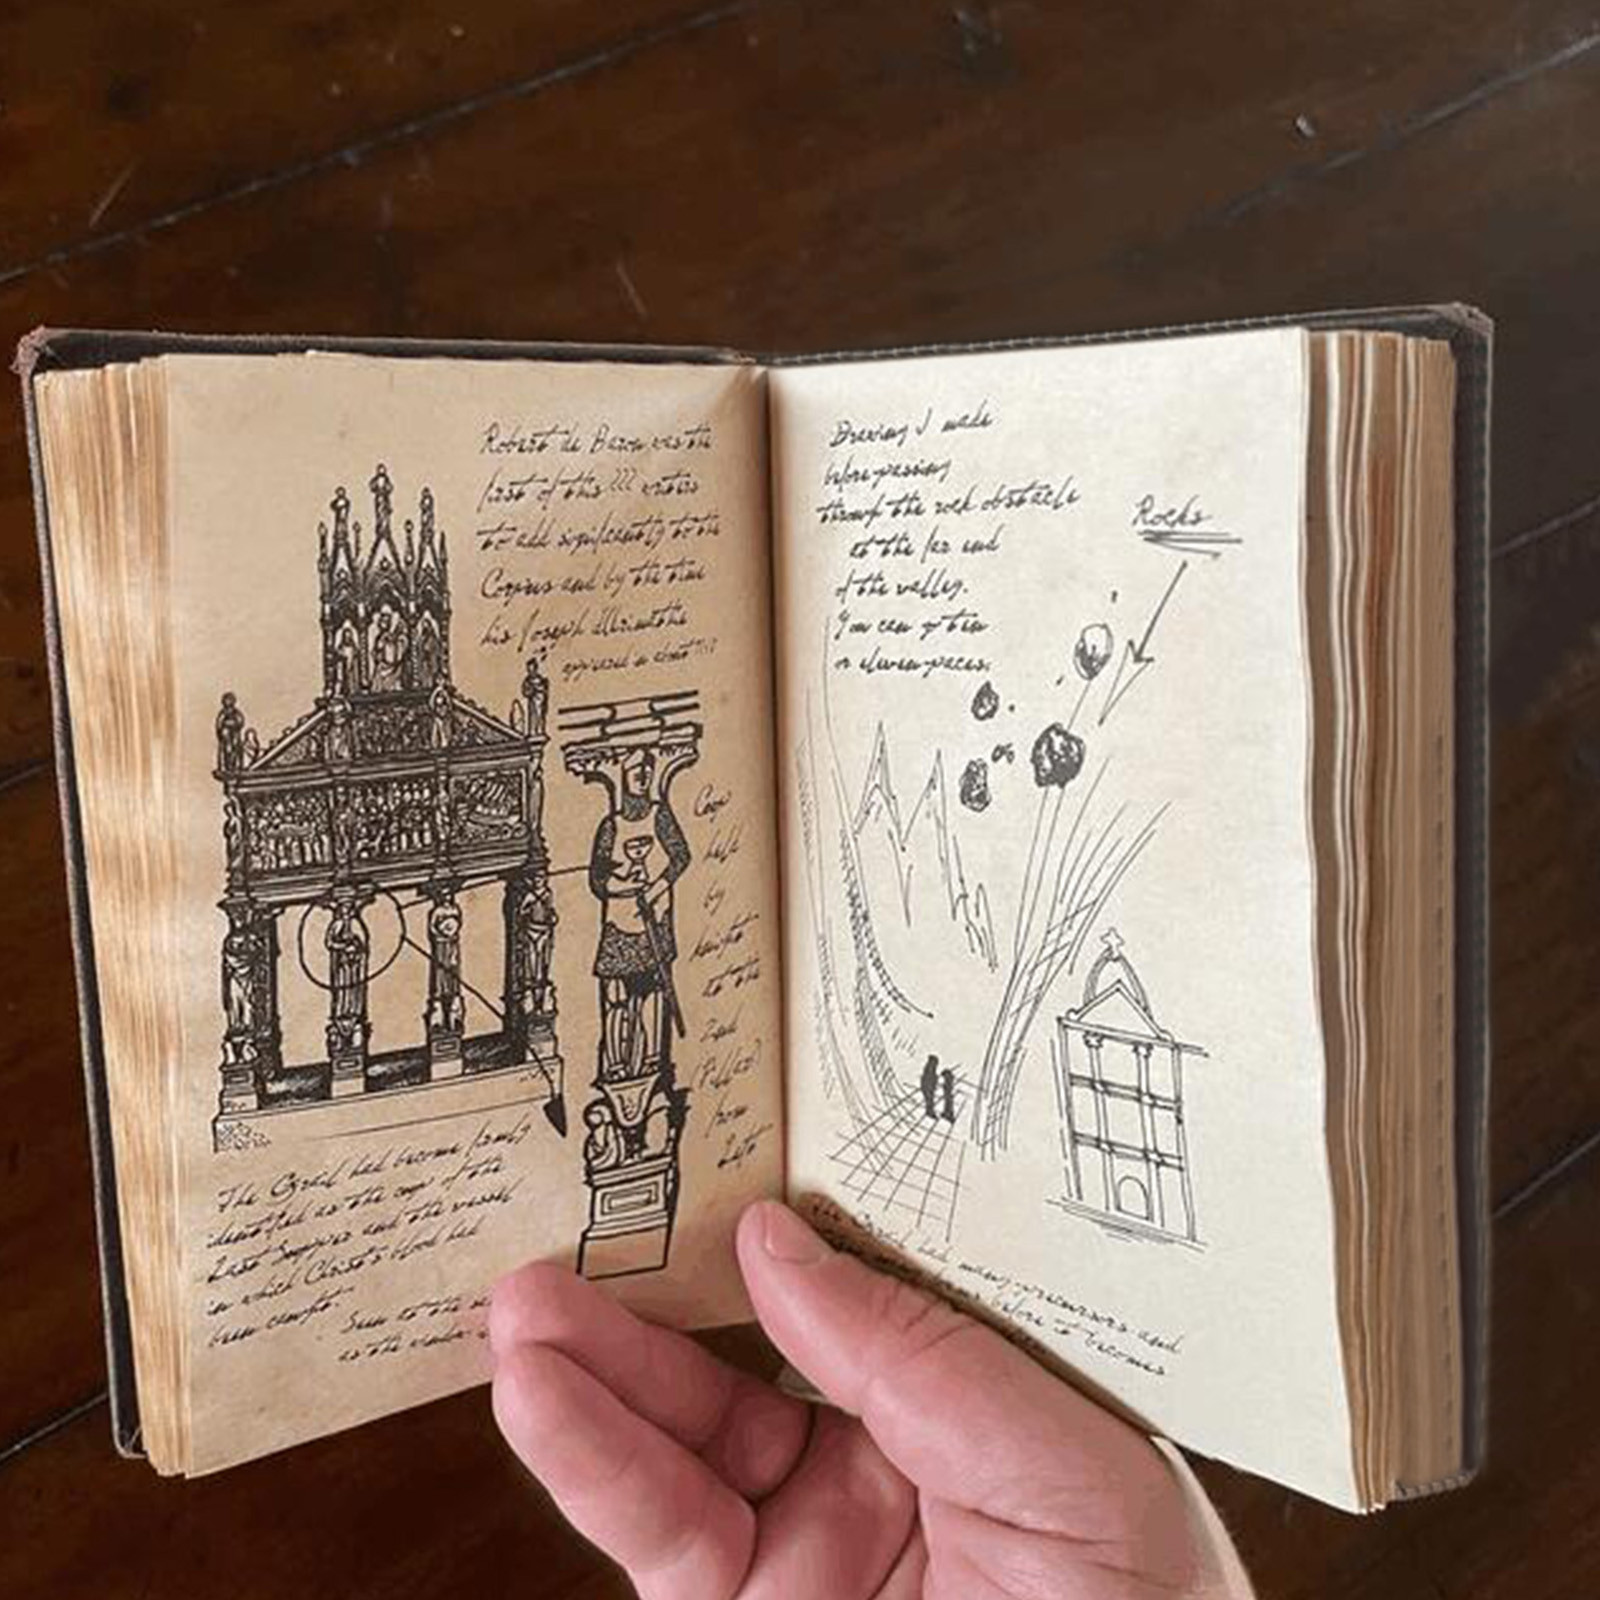 Robert de Baron was the
first of this ??? writers
to add significantly to the
Corpus and by the time
his Joseph d'Arimathe
appeared in about
Cup
held
by
knight
at the
2nd
(Pillar)
from
Left
The Grail had become firmly
identified as the cup of the
Last Supper and the vessel
in which Christ's blood had
been caught.
Seen to the
as the
Drawing I made
before passing
through the rock obstacle
at the far end
of the valley.
You can go ten
or eleven paces.
Rocks
The Grail had many precursors and
before it becomes